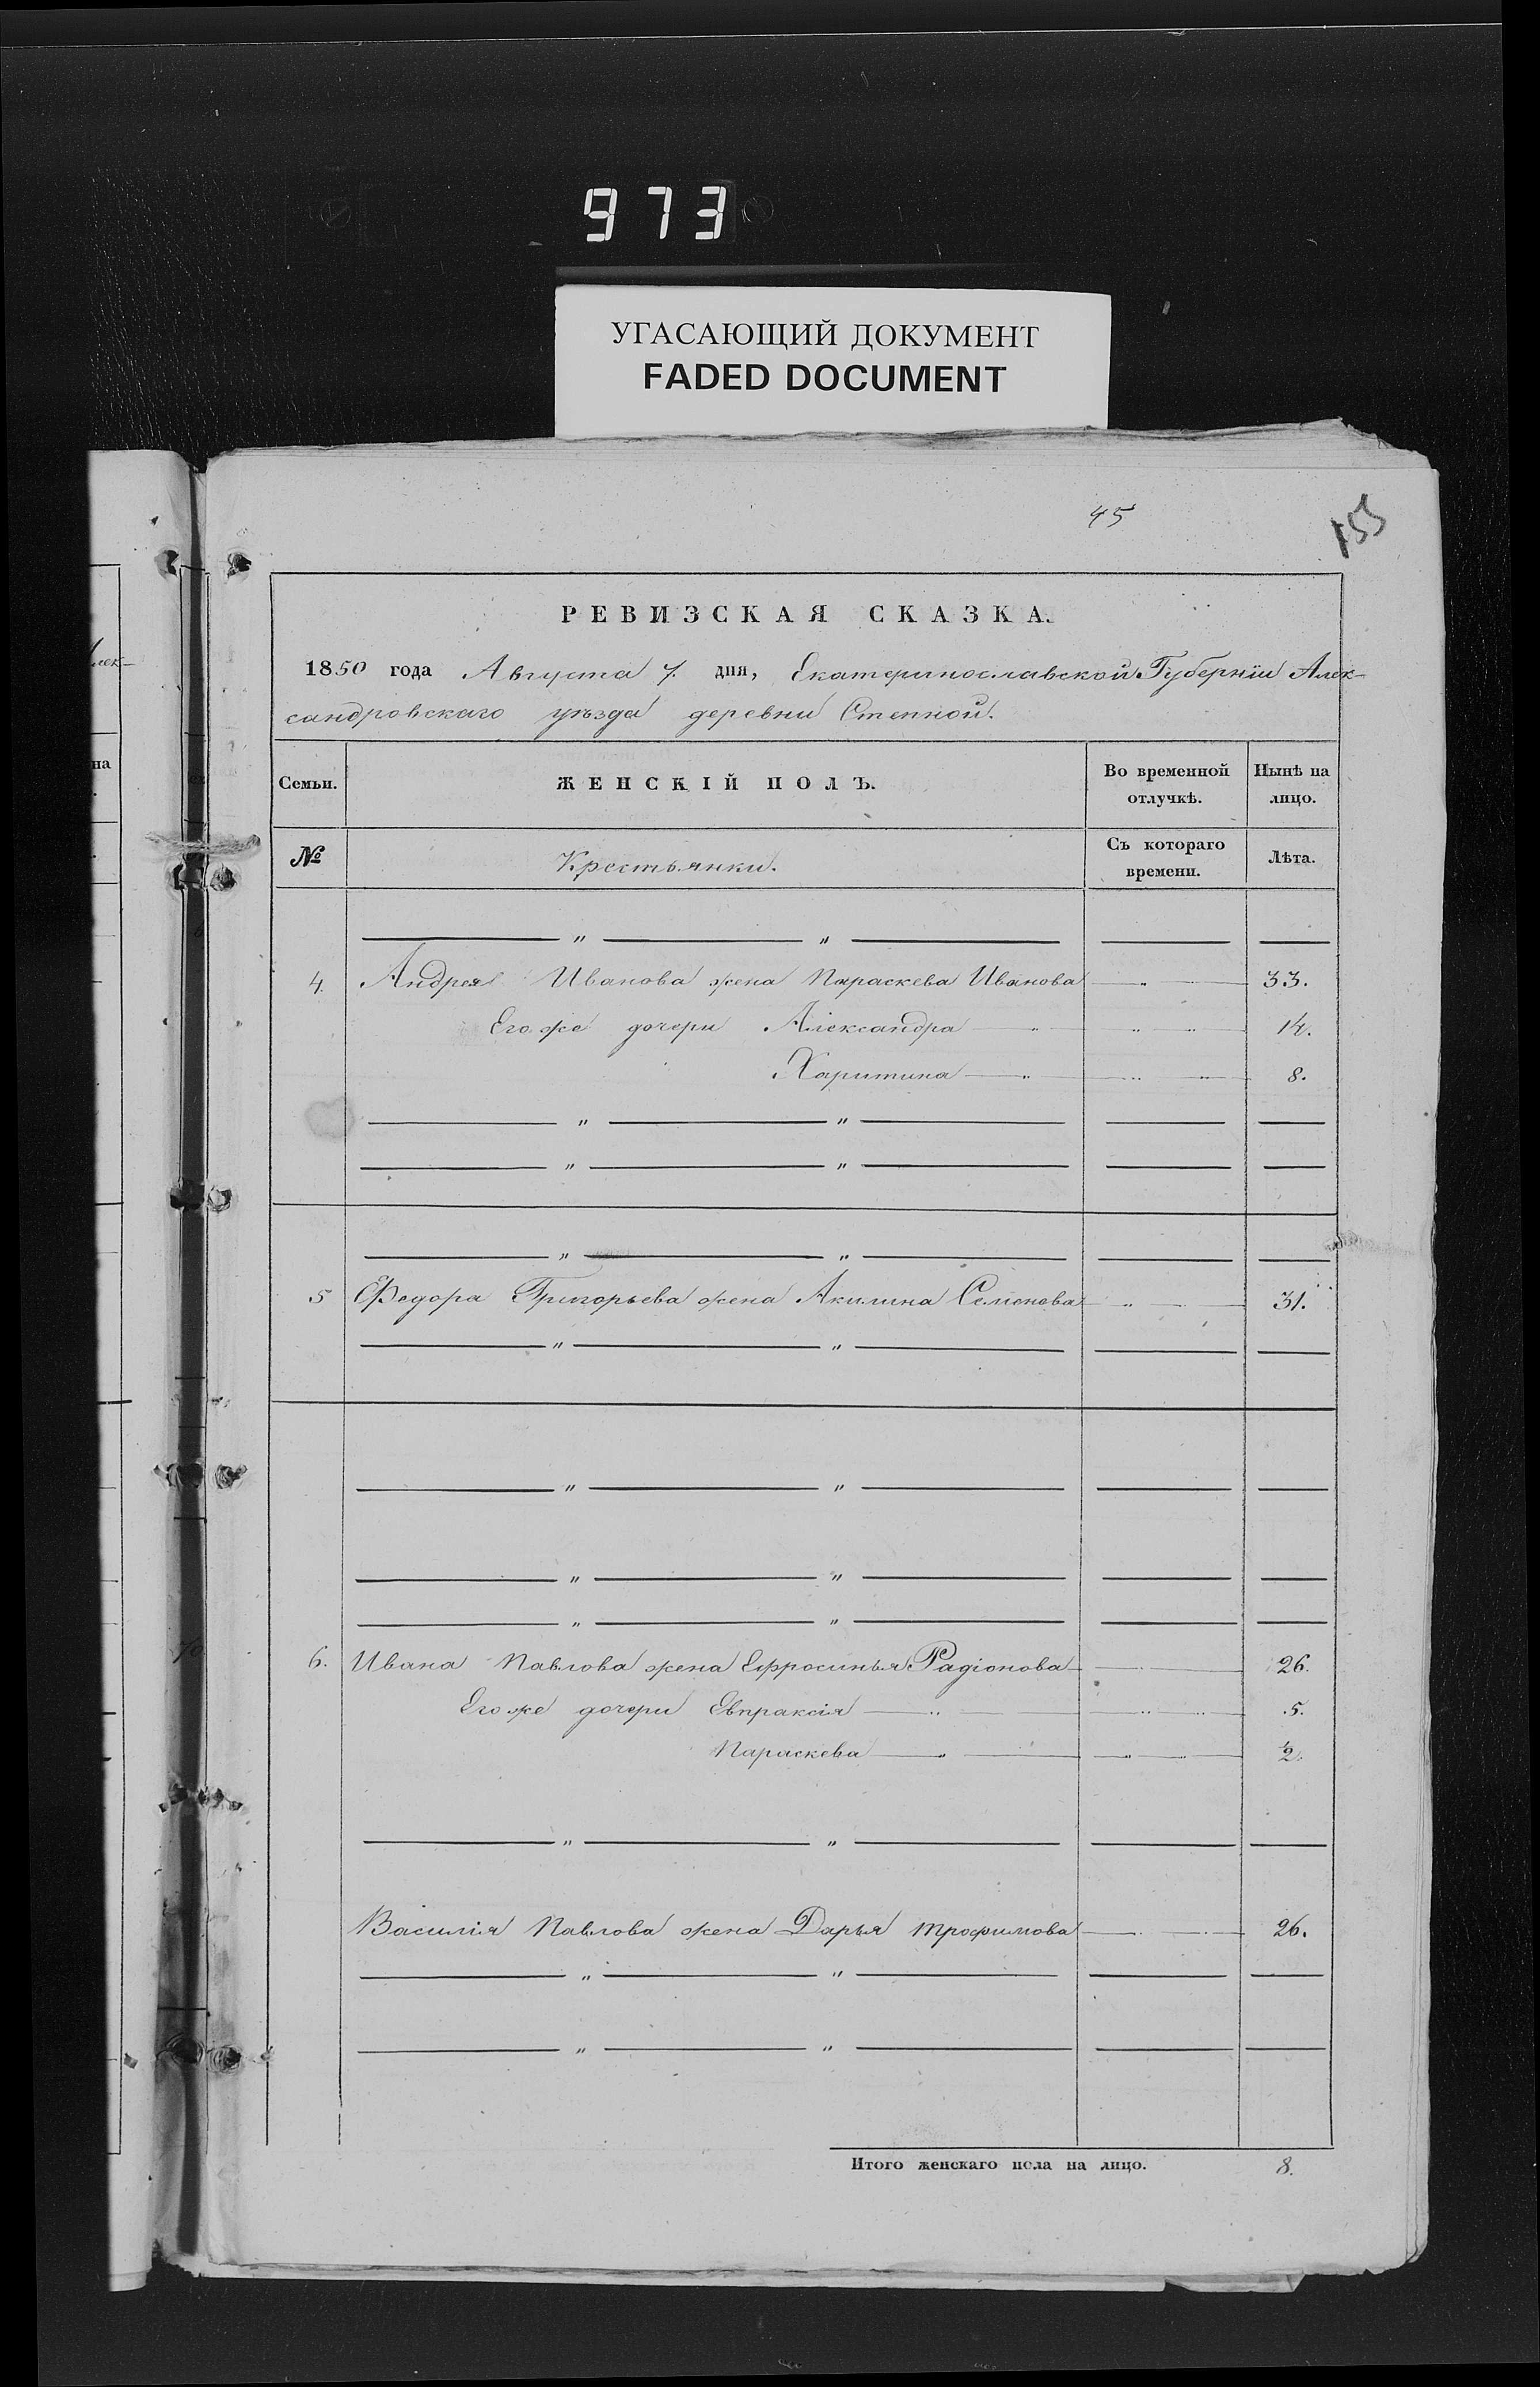 973
УГАСАЮЩИЙ ДОКУМЕНТ
FADED DOCUMENT
45
155
РЕВИЗСКАЯ СКАЗКА.
1850 года Августа 7. дня, Екатеринославской Губерніи Алек-
сандровскаго уѣзда деревни Степной.
Семьи. ЖЕНСКІЙ ПОЛЪ. Во временной отлучкѣ. Нынѣ на лицо.
№ Крестьянки. Съ котораго времени. Лѣта.
4. Андрея Иванова жена Параскева Иванова 33.
Его же дочери Александра 14.
Харитина 8.
5 Федора Григорьева жена Акилина Семенова 31.
6. Ивана Павлова жена Ефросинья Радіонова 26.
Его же дочери Евпраксія 5.
Параскева
Василія Павлова жена Дарья Трофимова 26.
Итого женскаго пола на лицо. 8.